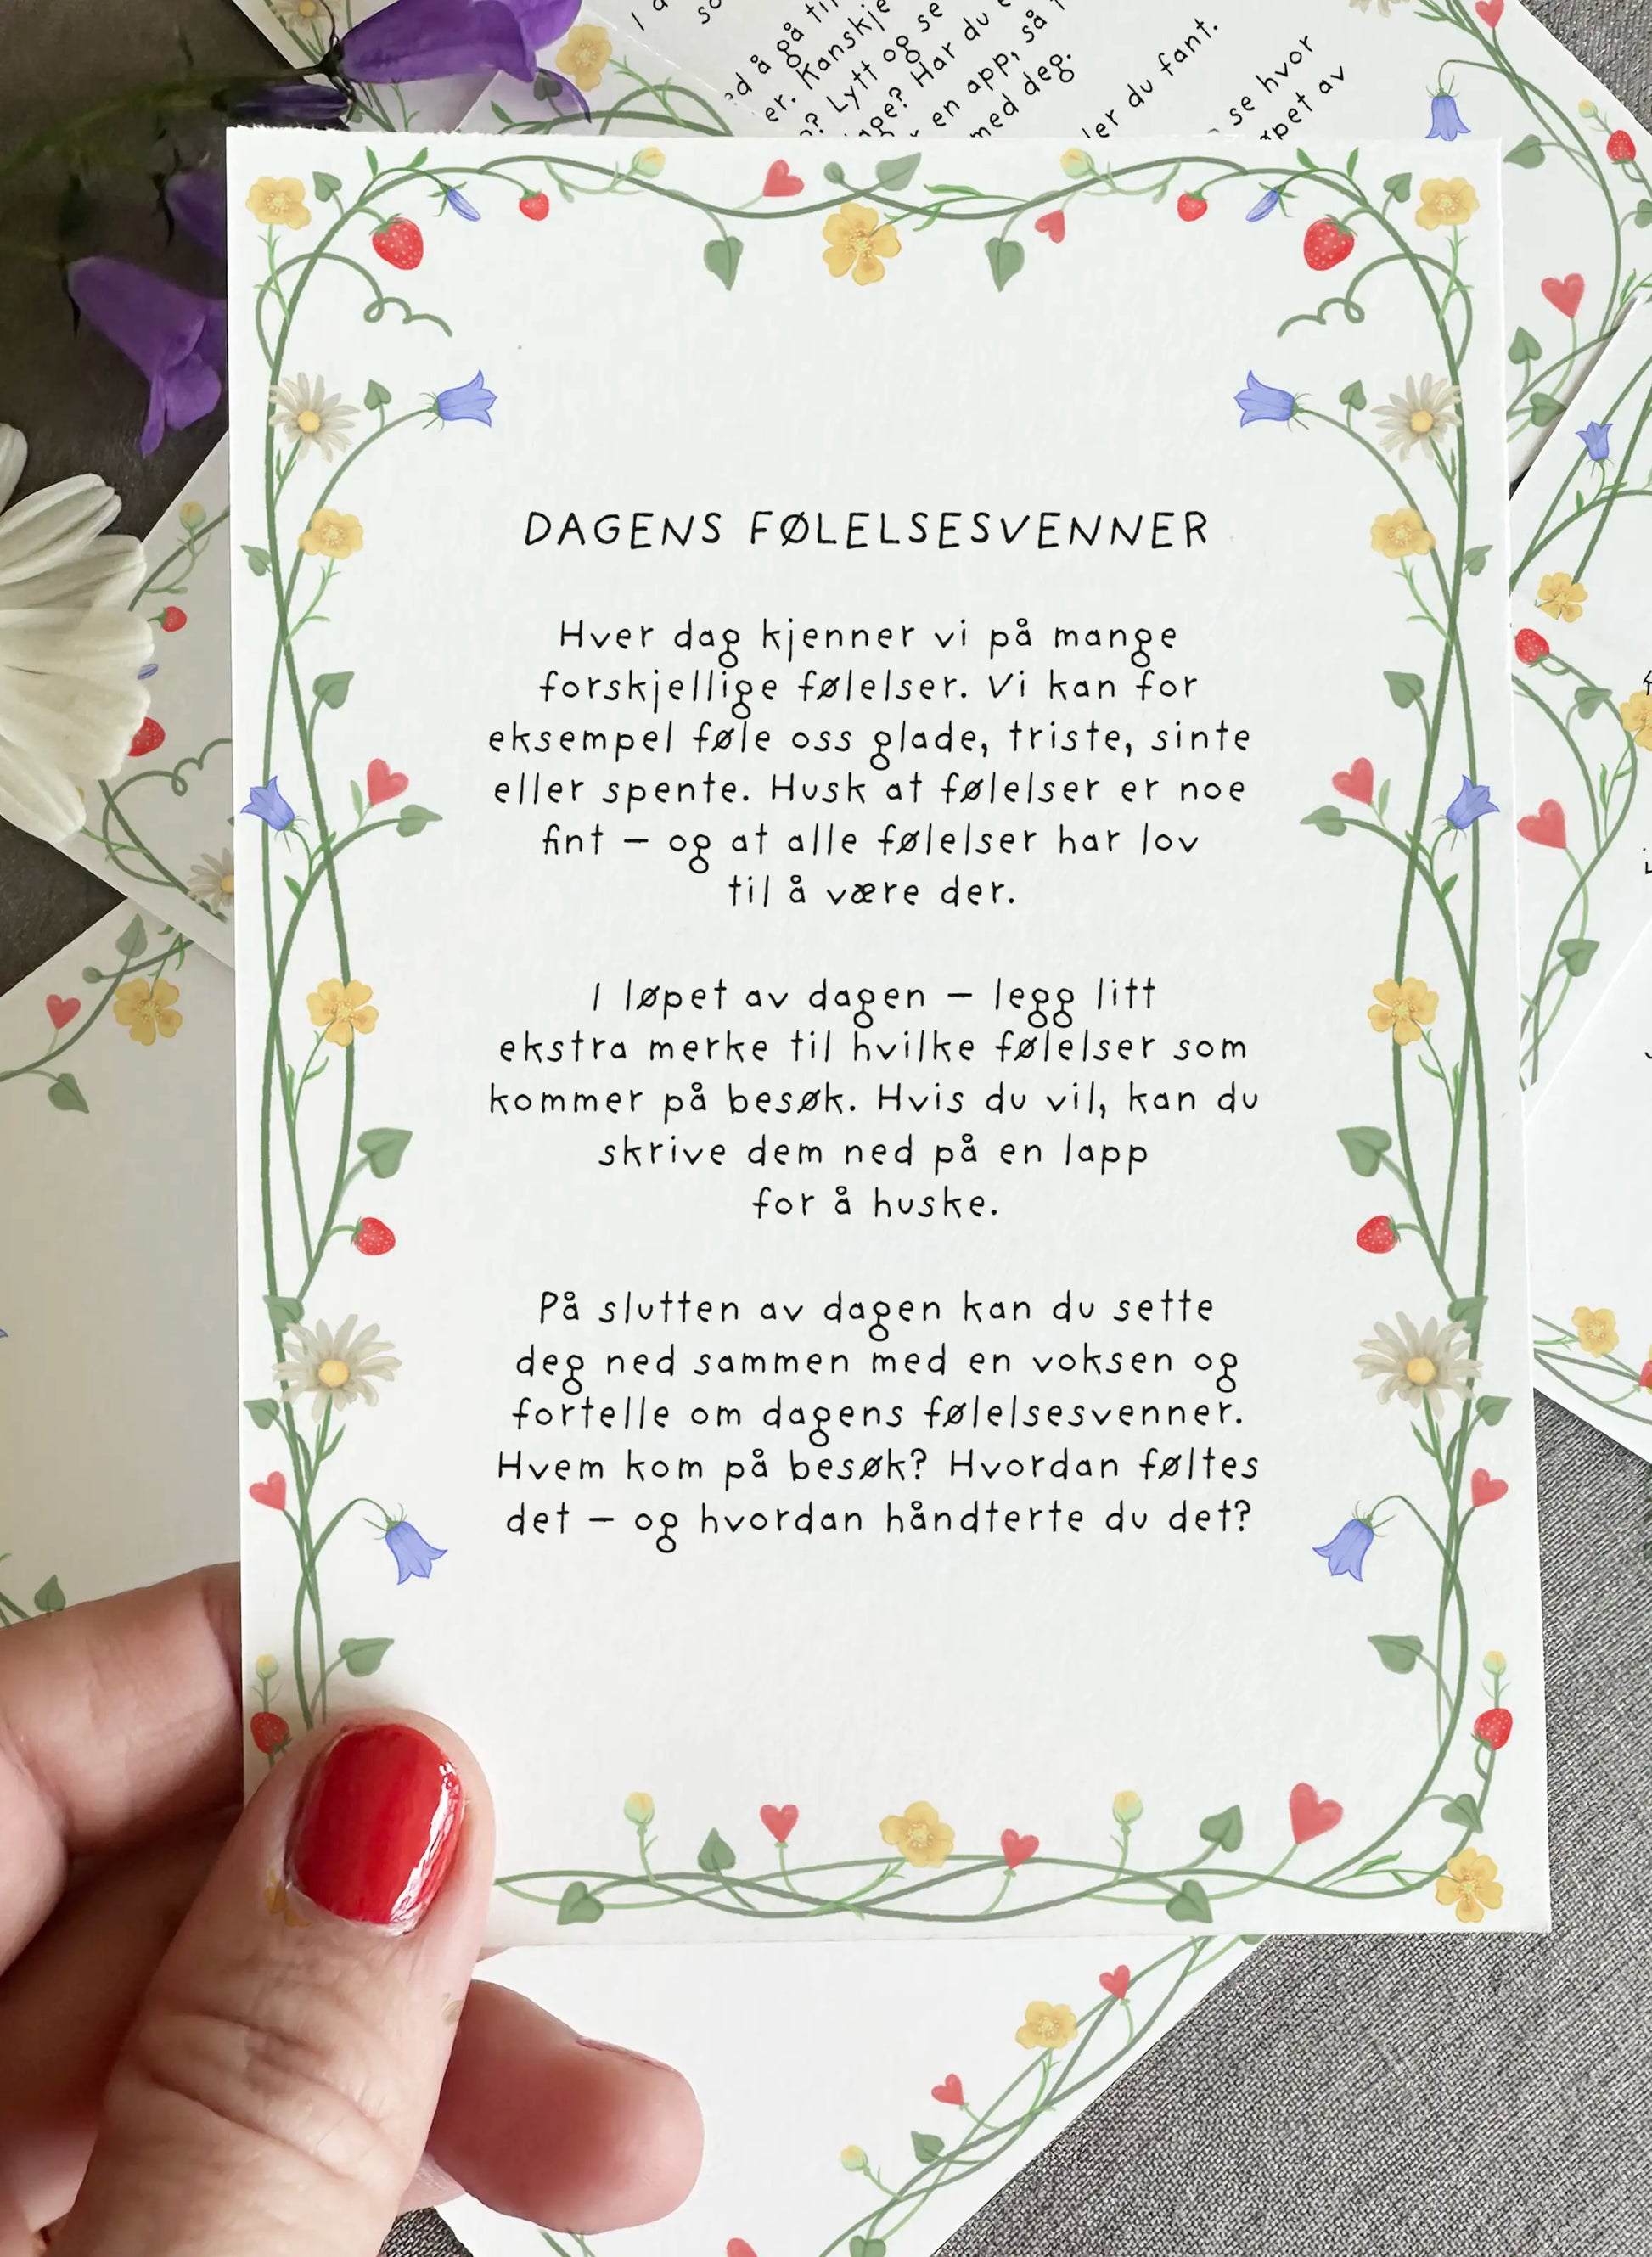 å gå til
er. Kanskje
? Lytt og se
? Har du
en app, så
med deg.
du fant.
se hvor
av
DAGENS FØLELSESVENNER
Hver dag kjenner vi på mange
forskjellige følelser. Vi kan for
eksempel føle oss glade, triste, sinte
eller spente. Husk at følelser er noe
fint – og at alle følelser har lov
til å være der.
I løpet av dagen – legg litt
ekstra merke til hvilke følelser som
kommer på besøk. Hvis du vil, kan du
skrive dem ned på en lapp
for å huske.
På slutten av dagen kan du sette
deg ned sammen med en voksen og
fortelle om dagens følelsesvenner.
Hvem kom på besøk? Hvordan føltes
det – og hvordan håndterte du det?